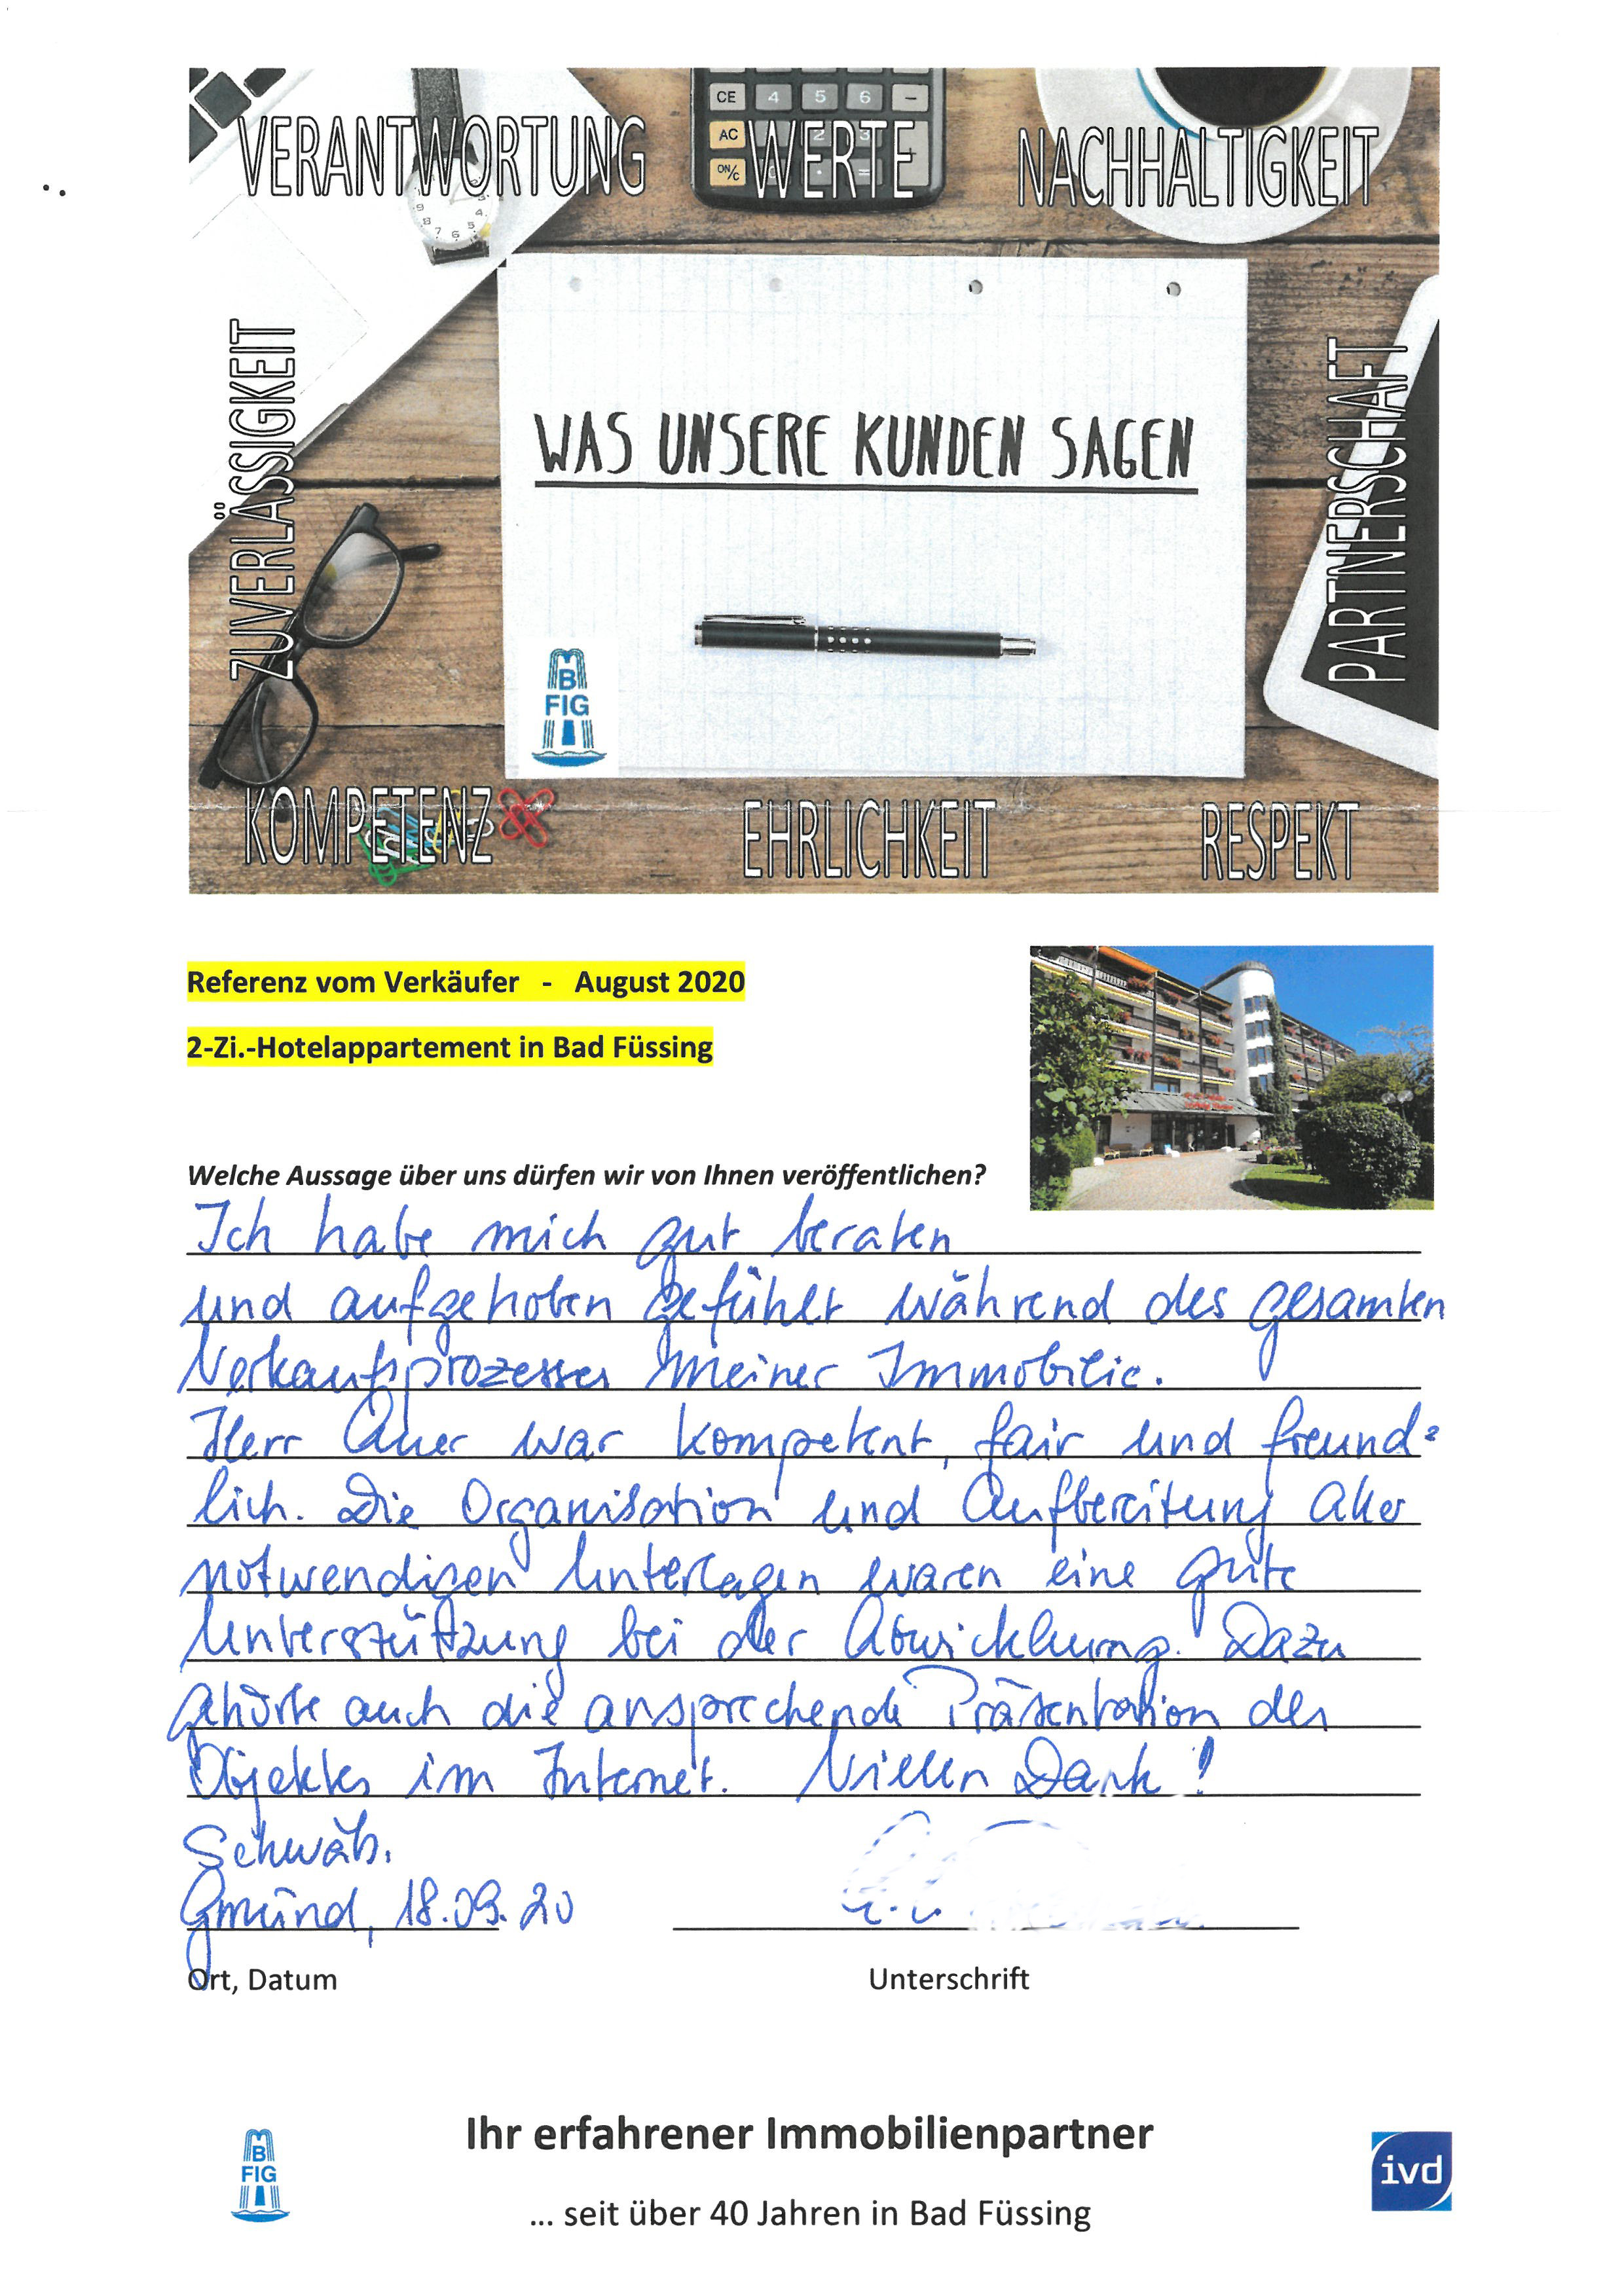 CE 4 5 6 -
AC 2 3 +
ON/C . =
VERANTWORTUNG WERTE NACHHALTIGKEIT
ZUVERLÄSSIGKEIT
WAS UNSERE KUNDEN SAGEN
PARTNERSCHAFT
B
FIG
KOMPETENZ EHRLICHKEIT RESPEKT
Referenz vom Verkäufer - August 2020
2-Zi.-Hotelappartement in Bad Füssing
Welche Aussage über uns dürfen wir von Ihnen veröffentlichen?
Ich habe mich gut beraten
und aufgehoben gefühlt während des gesamten
Verkaufsprozesses meiner Immobilie.
Herr Auer war kompetent, fair und freund=
lich. Die Organisation und Aufbereitung aller
notwendigen Unterlagen waren eine gute
Unterstützung bei der Abwicklung. Dazu
gehörte auch die ansprechende Präsentation des
Objektes im Internet. Vielen Dank!
Schwäb.
Gmünd, 18.09.20
Ort, Datum Unterschrift
B
FIG
Ihr erfahrener Immobilienpartner
... seit über 40 Jahren in Bad Füssing
ivd